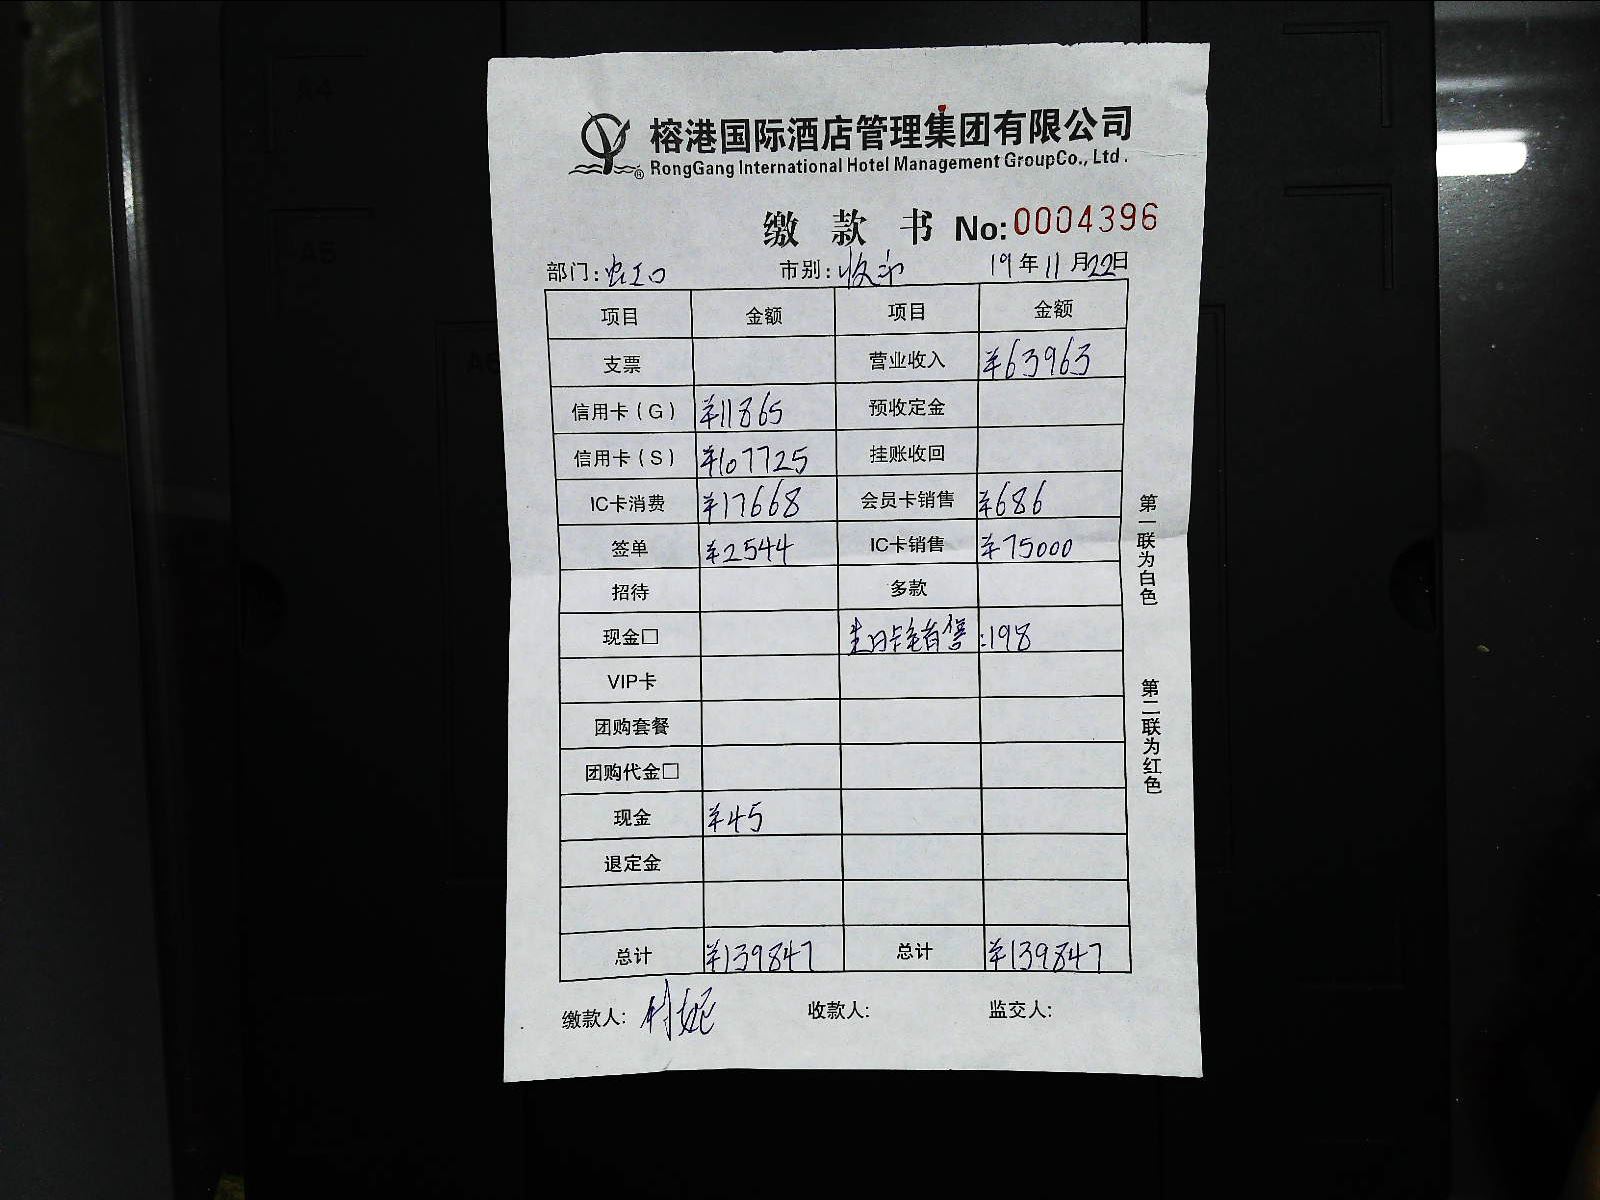 榕港国际酒店管理集团有限公司
RongGang International Hotel Management GroupCo., Ltd.
缴款书 No:0004396
部门:虹口 市别:收市 19年11月22日
项目 金额 项目 金额
支票 营业收入 ¥63963
信用卡(G) ¥11865 预收定金
信用卡(S) ¥107725 挂账收回
IC卡消费 ¥17668 会员卡销售 ¥686
签单 ¥2544 IC卡销售 ¥75000
招待 多款
现金□ 生日卡销售 :198
VIP卡
团购套餐
团购代金□
现金 ¥45
退定金
总计 ¥139847 总计 ¥139847
缴款人: 收款人: 监交人:
第一联为白色
第二联为红色
A4
A5
A6